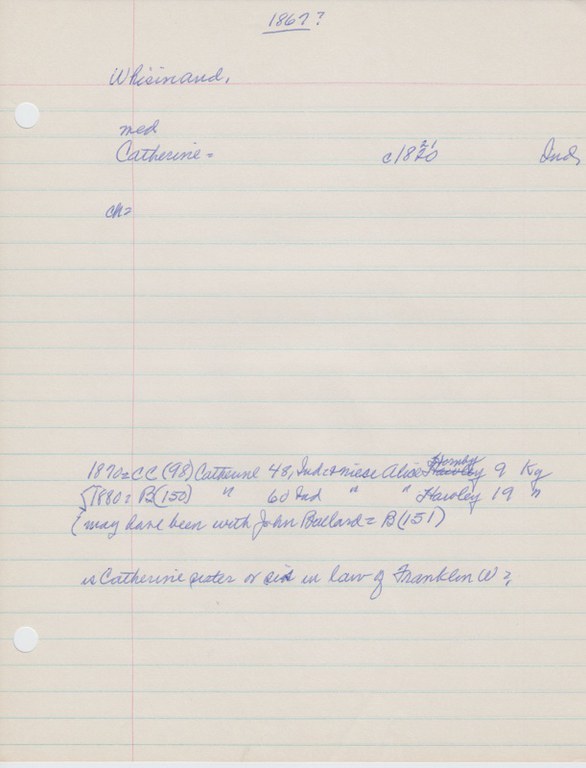 1867?
Whisinand,
med
Catherine = c/1820 21 Ind,
ch=
1870=CC(98) Catherine 48, Ind + niece Alice Hornby 9 Ky
1880= B(150) " 60 Ind " " Hawley 19 "
(may have been with John Ballard = B(151)
is Catherine sister or sis in law of Franklin W?